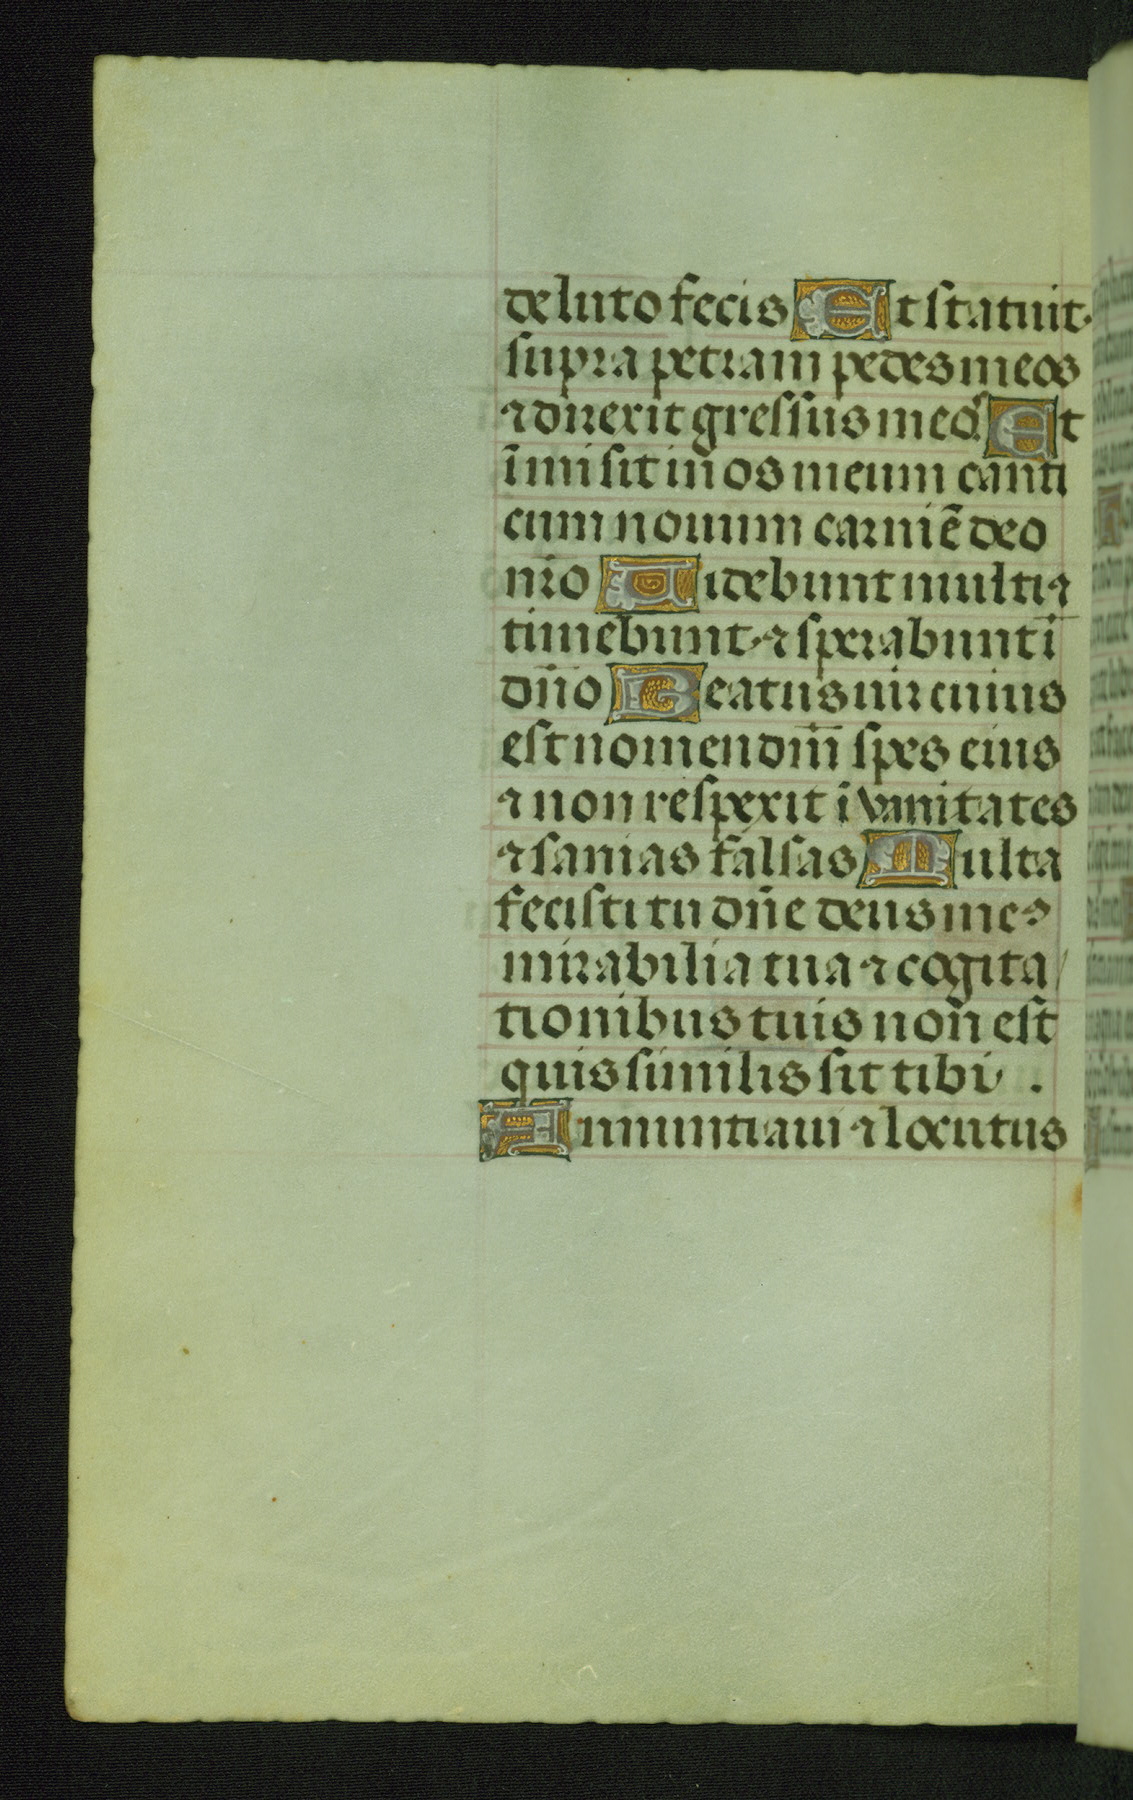 de luto fecis Et statuit
supra petram pedes meos
⁊ direxit gressus meoˢ Et
īmisit in os meum canti
cum nouum carmē deo
nr̄o Uidebunt multi ⁊
timebunt ⁊ sperabunt ī
dn̄o Beatus uir cuius
est nomen dm̄ spes eius
⁊ non respexit ī vanitates
⁊ sanias falsas Multa
fecisti tu dn̄e deus meꝰ
mirabilia tua ⁊ cogita/
tionibus tuis non̄ est
quis similis sit tibi .
Annuntiaui ⁊ locutus